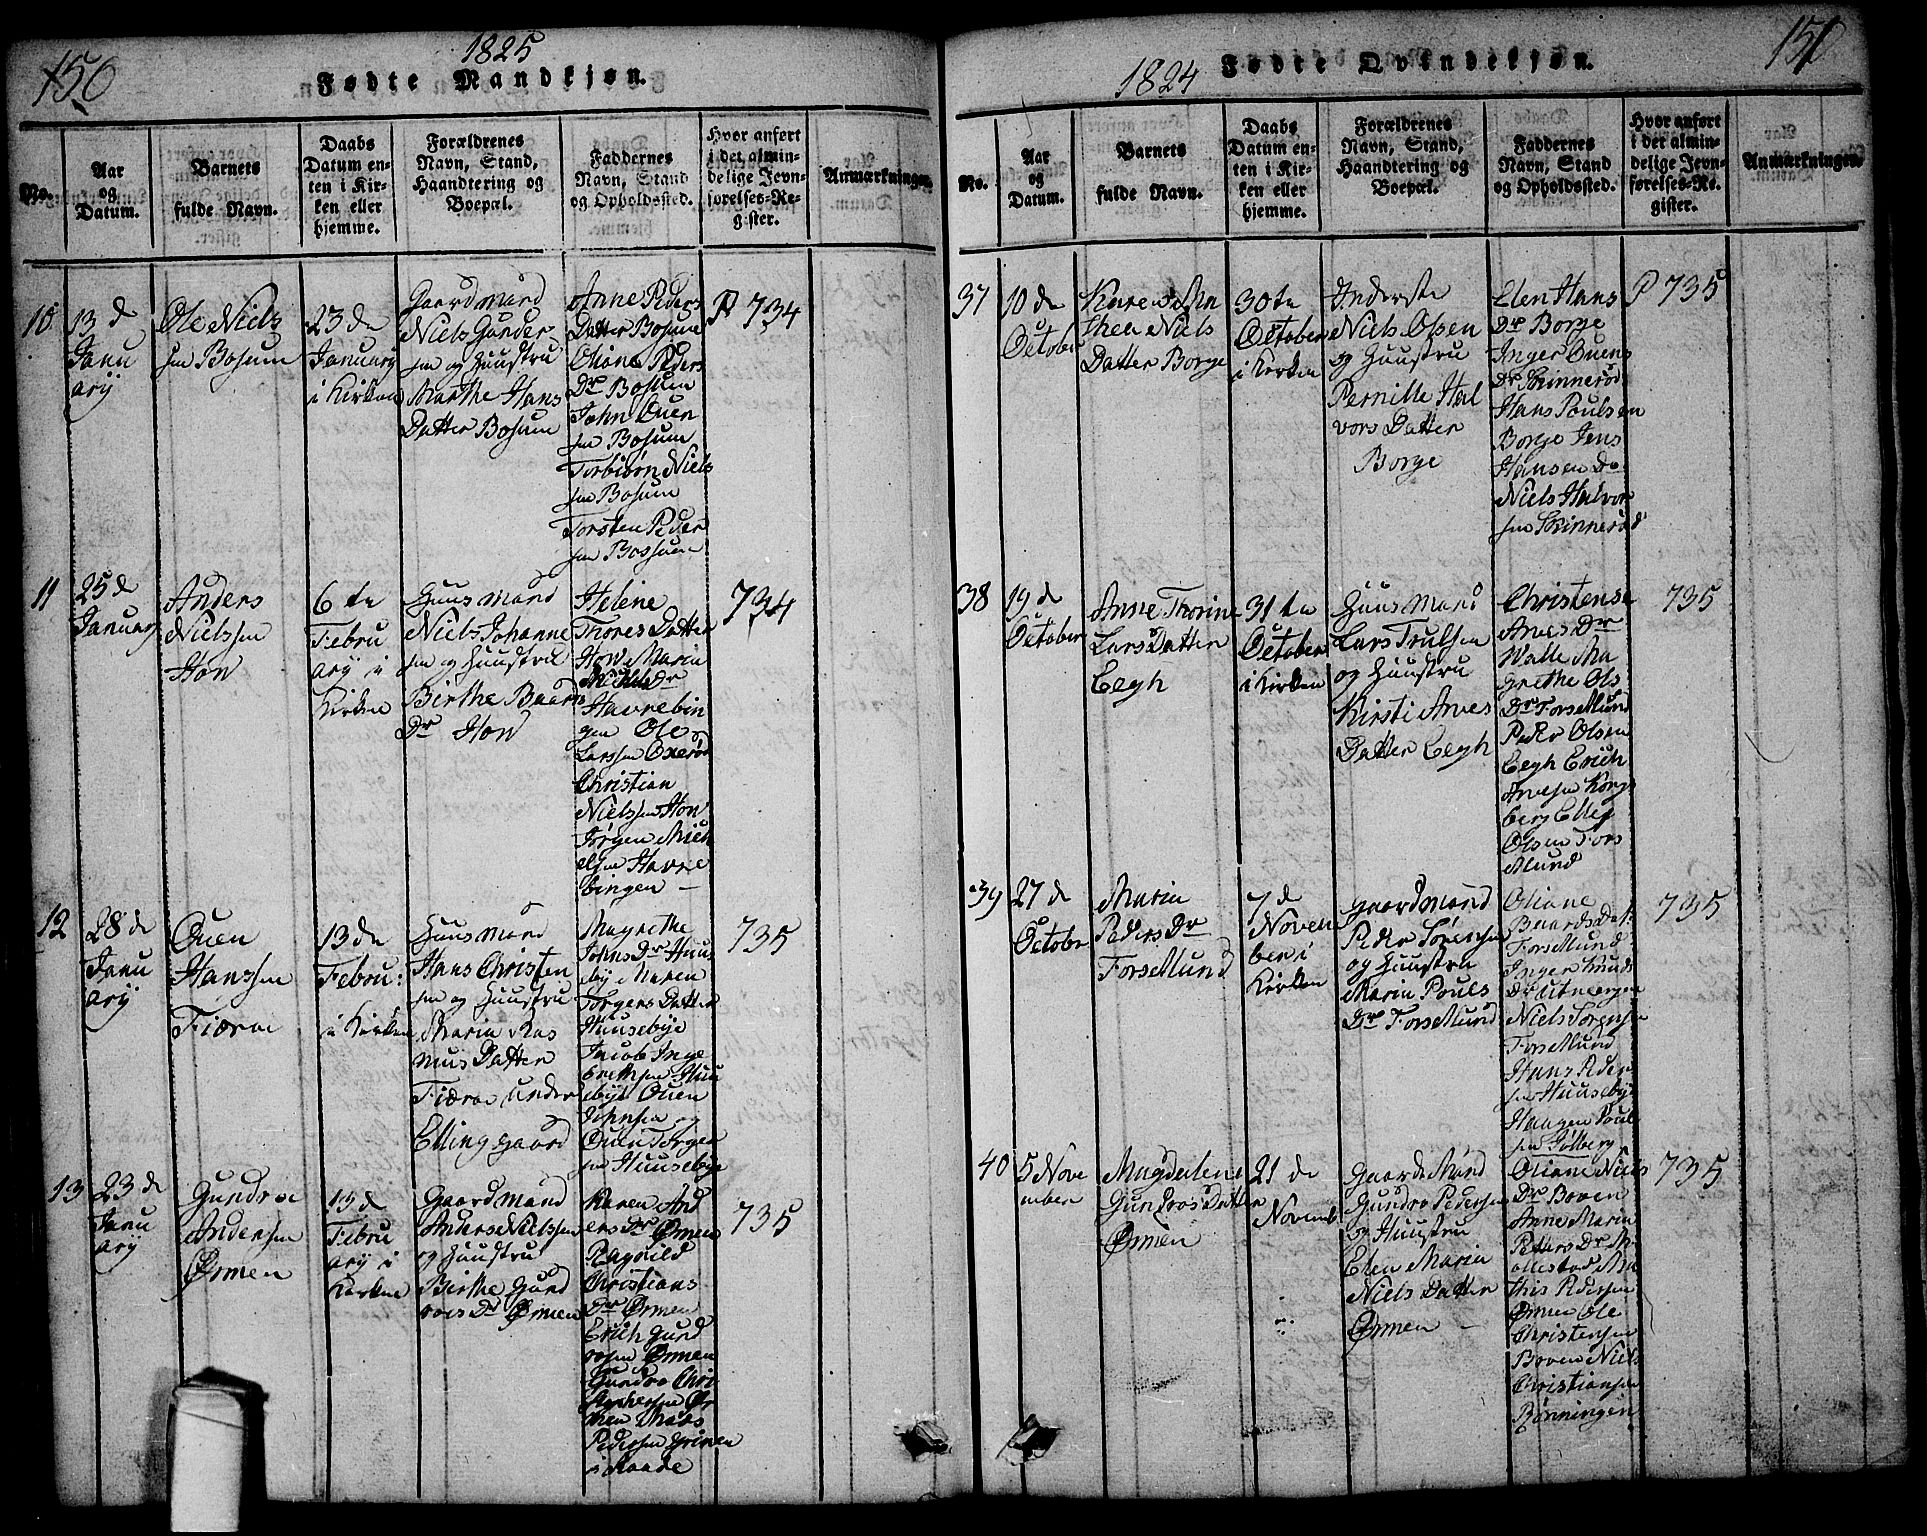 150
1825
Fødte Mandkjøn.
No.
Aar
og
Datum.
Barnets
fulde Navn.
Daabs
Datum en-
ten i Kir-
ken eller
hjemme.
Forældrenes
Navn, Stand,
Haandtering og
Boepæl.
Faddernes
Navn, Stand
og Opholdssted.
Hvor anført
i det almin-
delige Jevn-
førelses-Re-
gister.
Anmærkninger.
10
13 d
Janu
ary
Ole Niels
sen Bosum
23 de
January
i Kirken
Gaardmand
Niels Gunder
sen og Huustru
Marthe Hans
Datter Bosum
Anne Peders
Datter Bosum
Oliane Peders
Dr Bosum
John Ouen
sen Bosum
Torbiørn Niels
sen Bosum
Torsten Peder
sen Bossum
P 734
11
25 d
January
Anders
Nielssen
Hon
6 te
Febru
ary i
Kirken
Huusmand
Niels Johanne
sen og Huustru
Birthe Baards
Dr Hon
Helene
Thores Datter
How Maria
Dr
Havrebin
gen Ole
Larssen Oxerød
Christian
Nielssen Hon
Jørgen Mich
elsen Havre
bingen
734
12
28 de
Janu
ary
Ouen
Hanssen
Fiæroe
13 de
Febru:
i Kirken
Huusmand
Hans Christen
sen og Huustru
Maria Ras
mus Datter
Fiæroe under
Ellinggaard
Magrethe
Johns Dr Huus
by Maren
Torgers Datter
Huusebye
Jacob Inge
brethsen Huu
sebye Ouen
Johnsen og
Ouen Torger
sen Huusebye
735
13
23 de
Janu
ary
Gundroe
Andersen
Ørmen
13 de
Febru
ary i
Kirken
Gaardmand
Anders Nielssen
og Huustru
Birthe Gund
roes Dr Ørmen
Karen And
ers Dr Ørmen
Ragnild
Christians
Dr Ørmen
Erich Gund
rosen Ørmen
Gundro Chri
stophersen Ør
men Mads
Pedersen Grimen
i Raade
735
151
1824
Fødte Qvindekjøn.
No.
Aar
og
Datum.
Barnets
fulde Navn.
Daabs
Datum en-
ten i Kir-
ken eller
hjemme.
Forældrenes
Navn, Stand,
Haandtering og
Boepæl.
Faddernes
Navn, Stand
og Opholdssted.
Hvor anført
i det almin-
delige Jevn-
førelses-Re-
gister.
Anmærkninger.
37
10 de
October
Kare
thea Niels
Datter Borge
30 te
October
i Kirken
Inderste
Niels Olsen
og Huustru
Pernille Hal
vors Datter
Borge
Elen Hans
Dr Borge
Inger Ouens
Dr Skinnerød
Hans Poulsen
Borge Jens
Hansen Do
Niels Halvor
sen Skinnerød
P 735
38
19 de
October
Anne Thorine
Lars Datter
Eegh
31 te
October
i Kirken
Huusmand
Lars Trulsen
og Huustru
Kirsti Arves
Datter Eegh
Christense
Arves Dr
Walle Ma
grethe Ols
Dr Forsetlund
Peder Olsen
Eegh Erich
Arvesen Kongs
berg Ellef
Olsen Fors
etlund
735
39
27 de
October
Maria
Peders Dr
Forsetlund
7 de
Noven
ber i
Kirken
Gaardmand
Peder Sørensen
og Huustru
Maria Pouls
Dr Forsetlund
Oliane
Baards Dat:
Forsetlund
Inger Knuds
Dr Utnebergen
Niels Sørensen
Forsetlund
Hans Peder
sen Huusebye
Haagen Poul
sen Solberg
735
40
5 Nove
mber
Magdalene
Gundros Datter
Ørmen
21 de
Novemb
Gaardmand
Gundro Pedersen
og Huustru
Elen Maria
Niels Datter
Ørmen
Oliane Niels
Dr Boven
Anne Maria
Peders Dr M
ollestad Ma
this Pedersen
Ørmen Ole
Christensen
Boven Niels
Christiansen
Bønningen
735